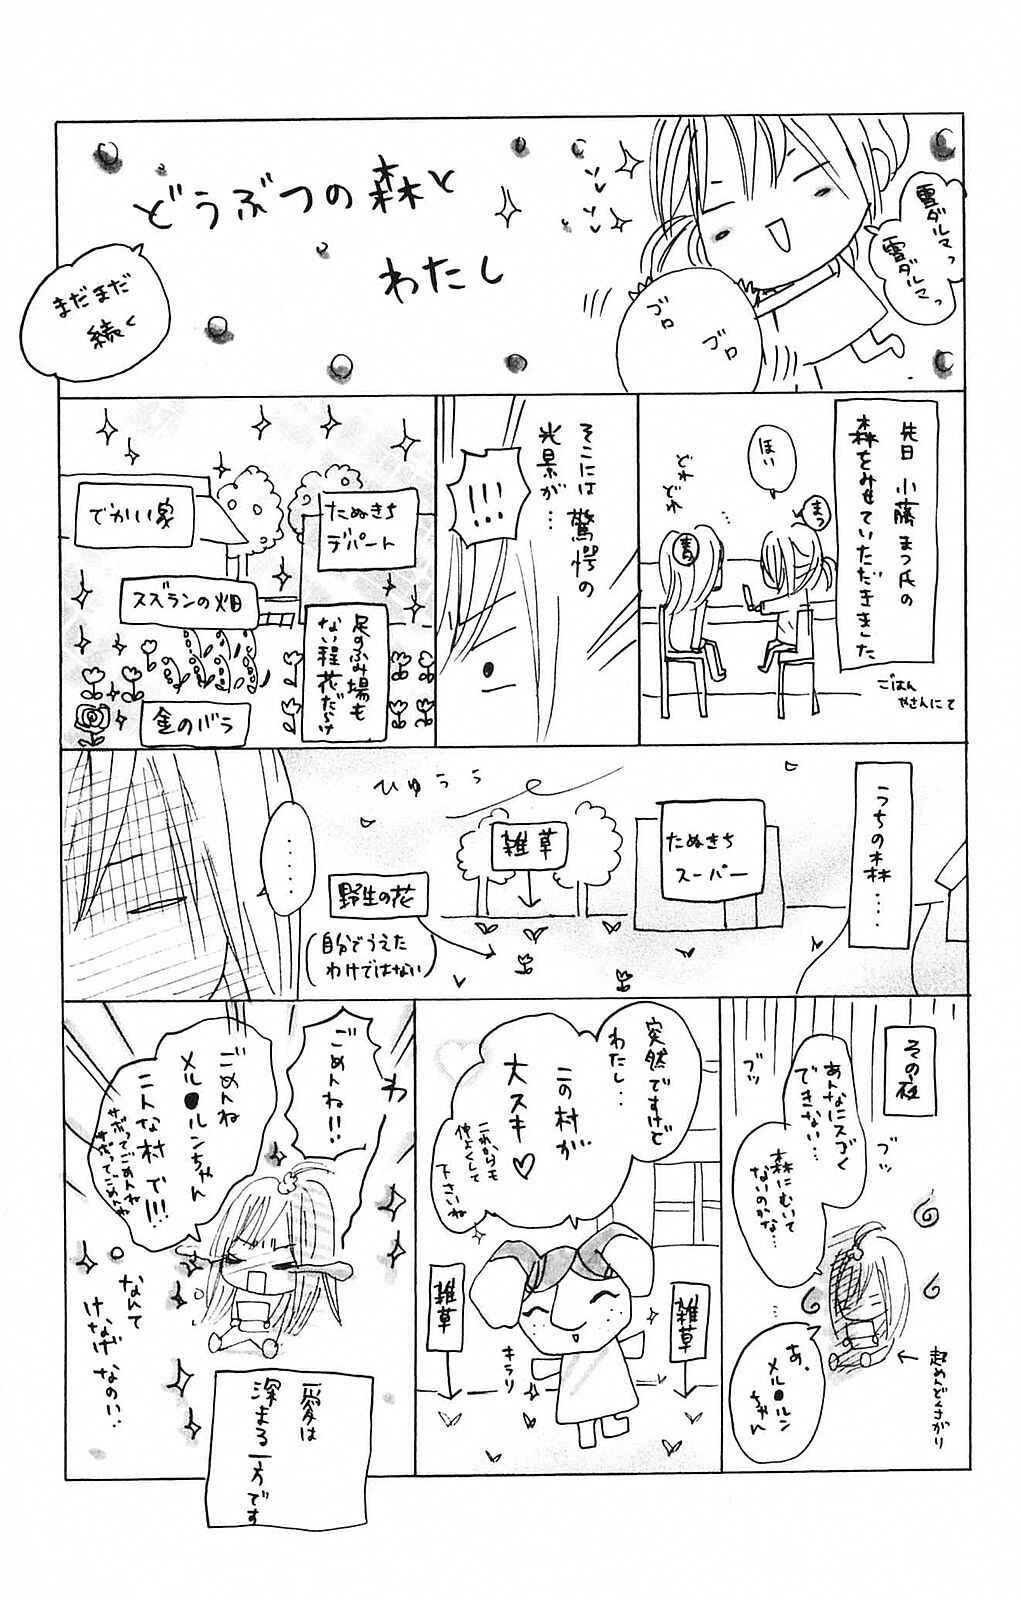 どうぶつの森と
わたし
まだまだ
続く
雪ダルマっ
雪ダルマっ
ゴロ
ゴロ
先日 小藤まつ氏の
森をみせていただきました
ごはん
やさんにて
まつ
ほい
どれ
どれ
そこには驚愕の
光景が…
!!!
たぬきち
デパート
でかい家
スズランの畑
足のふみ場も
ない程花だらけ
金のバラ
うちの森…
たぬきち
スーパー
ひゅうぅ
雑草
野生の花
(自分でうえた
わけではない)
……
その夜
あんなにスゴく
できない…
森にむいて
ないのかな…
ブッ
ブッ
超めんどくさがり
…
あ、
メル●ルン
ちゃん
突然ですけど
わたし…
この村が
大スキ♡
これからも
仲よくして
下さいね
雑草
雑草
キラリ
わ
ごめんね!!
ごめんね
メル●ルンちゃん
こんな村で!!!
サボってごめんね
サボってごめんね
なんて
けなげなの!!
愛は
深まる一方です